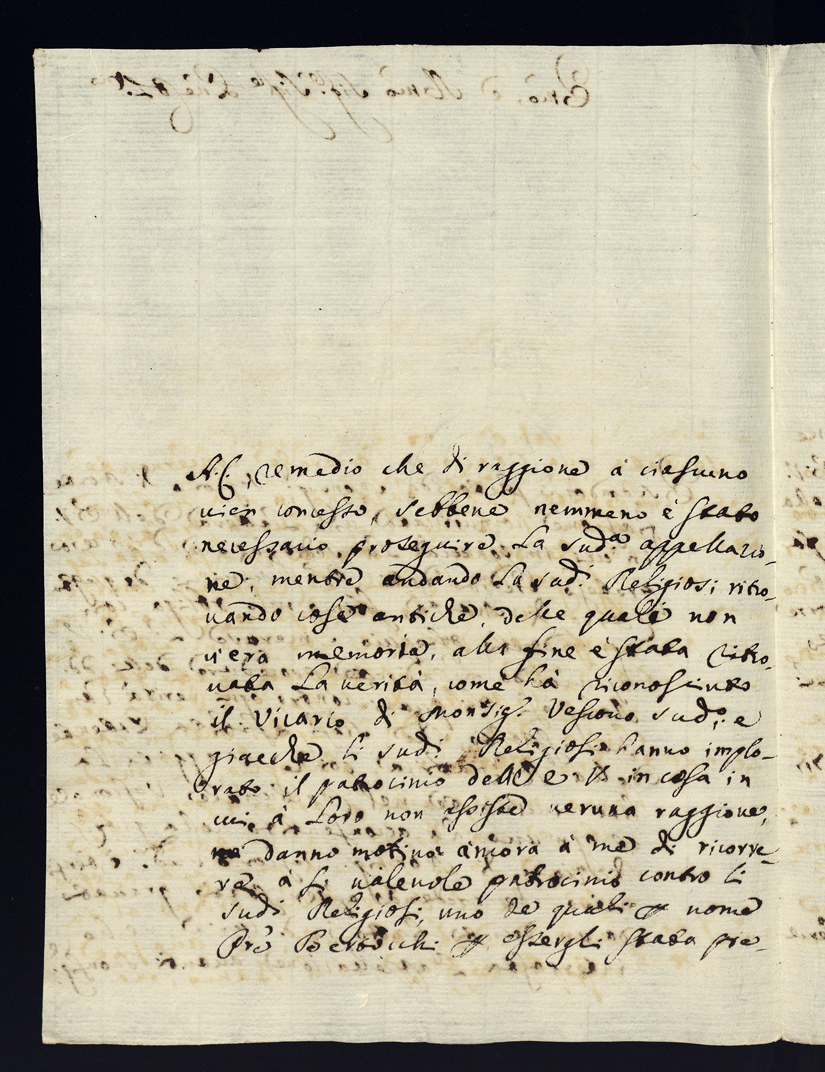 remedio che di raggione à ciascuno
vien concesso, sebbene nemmeno è stato
necessario proseguire la sud.ª appellazio-
ne, mentre andando li sud.i Religiosi ritro-
vando cose antiche, delle quali non
v'era memoria, alla fine è stata ritro-
vata la verità, come hà riconosciuto
il Vicario di Monsig.r Vescovo sud.o, e
giacche li sud.i Religiosi hanno implo-
rato il patrocinio dell' in cosa in
cui à loro non assiste veruna raggione,
danno motivo ancora à me di ricorre-
re à valevole patrocinio contro li
sud.i Religiosi, uno de quali p nome
Prē p essergli stata pre-